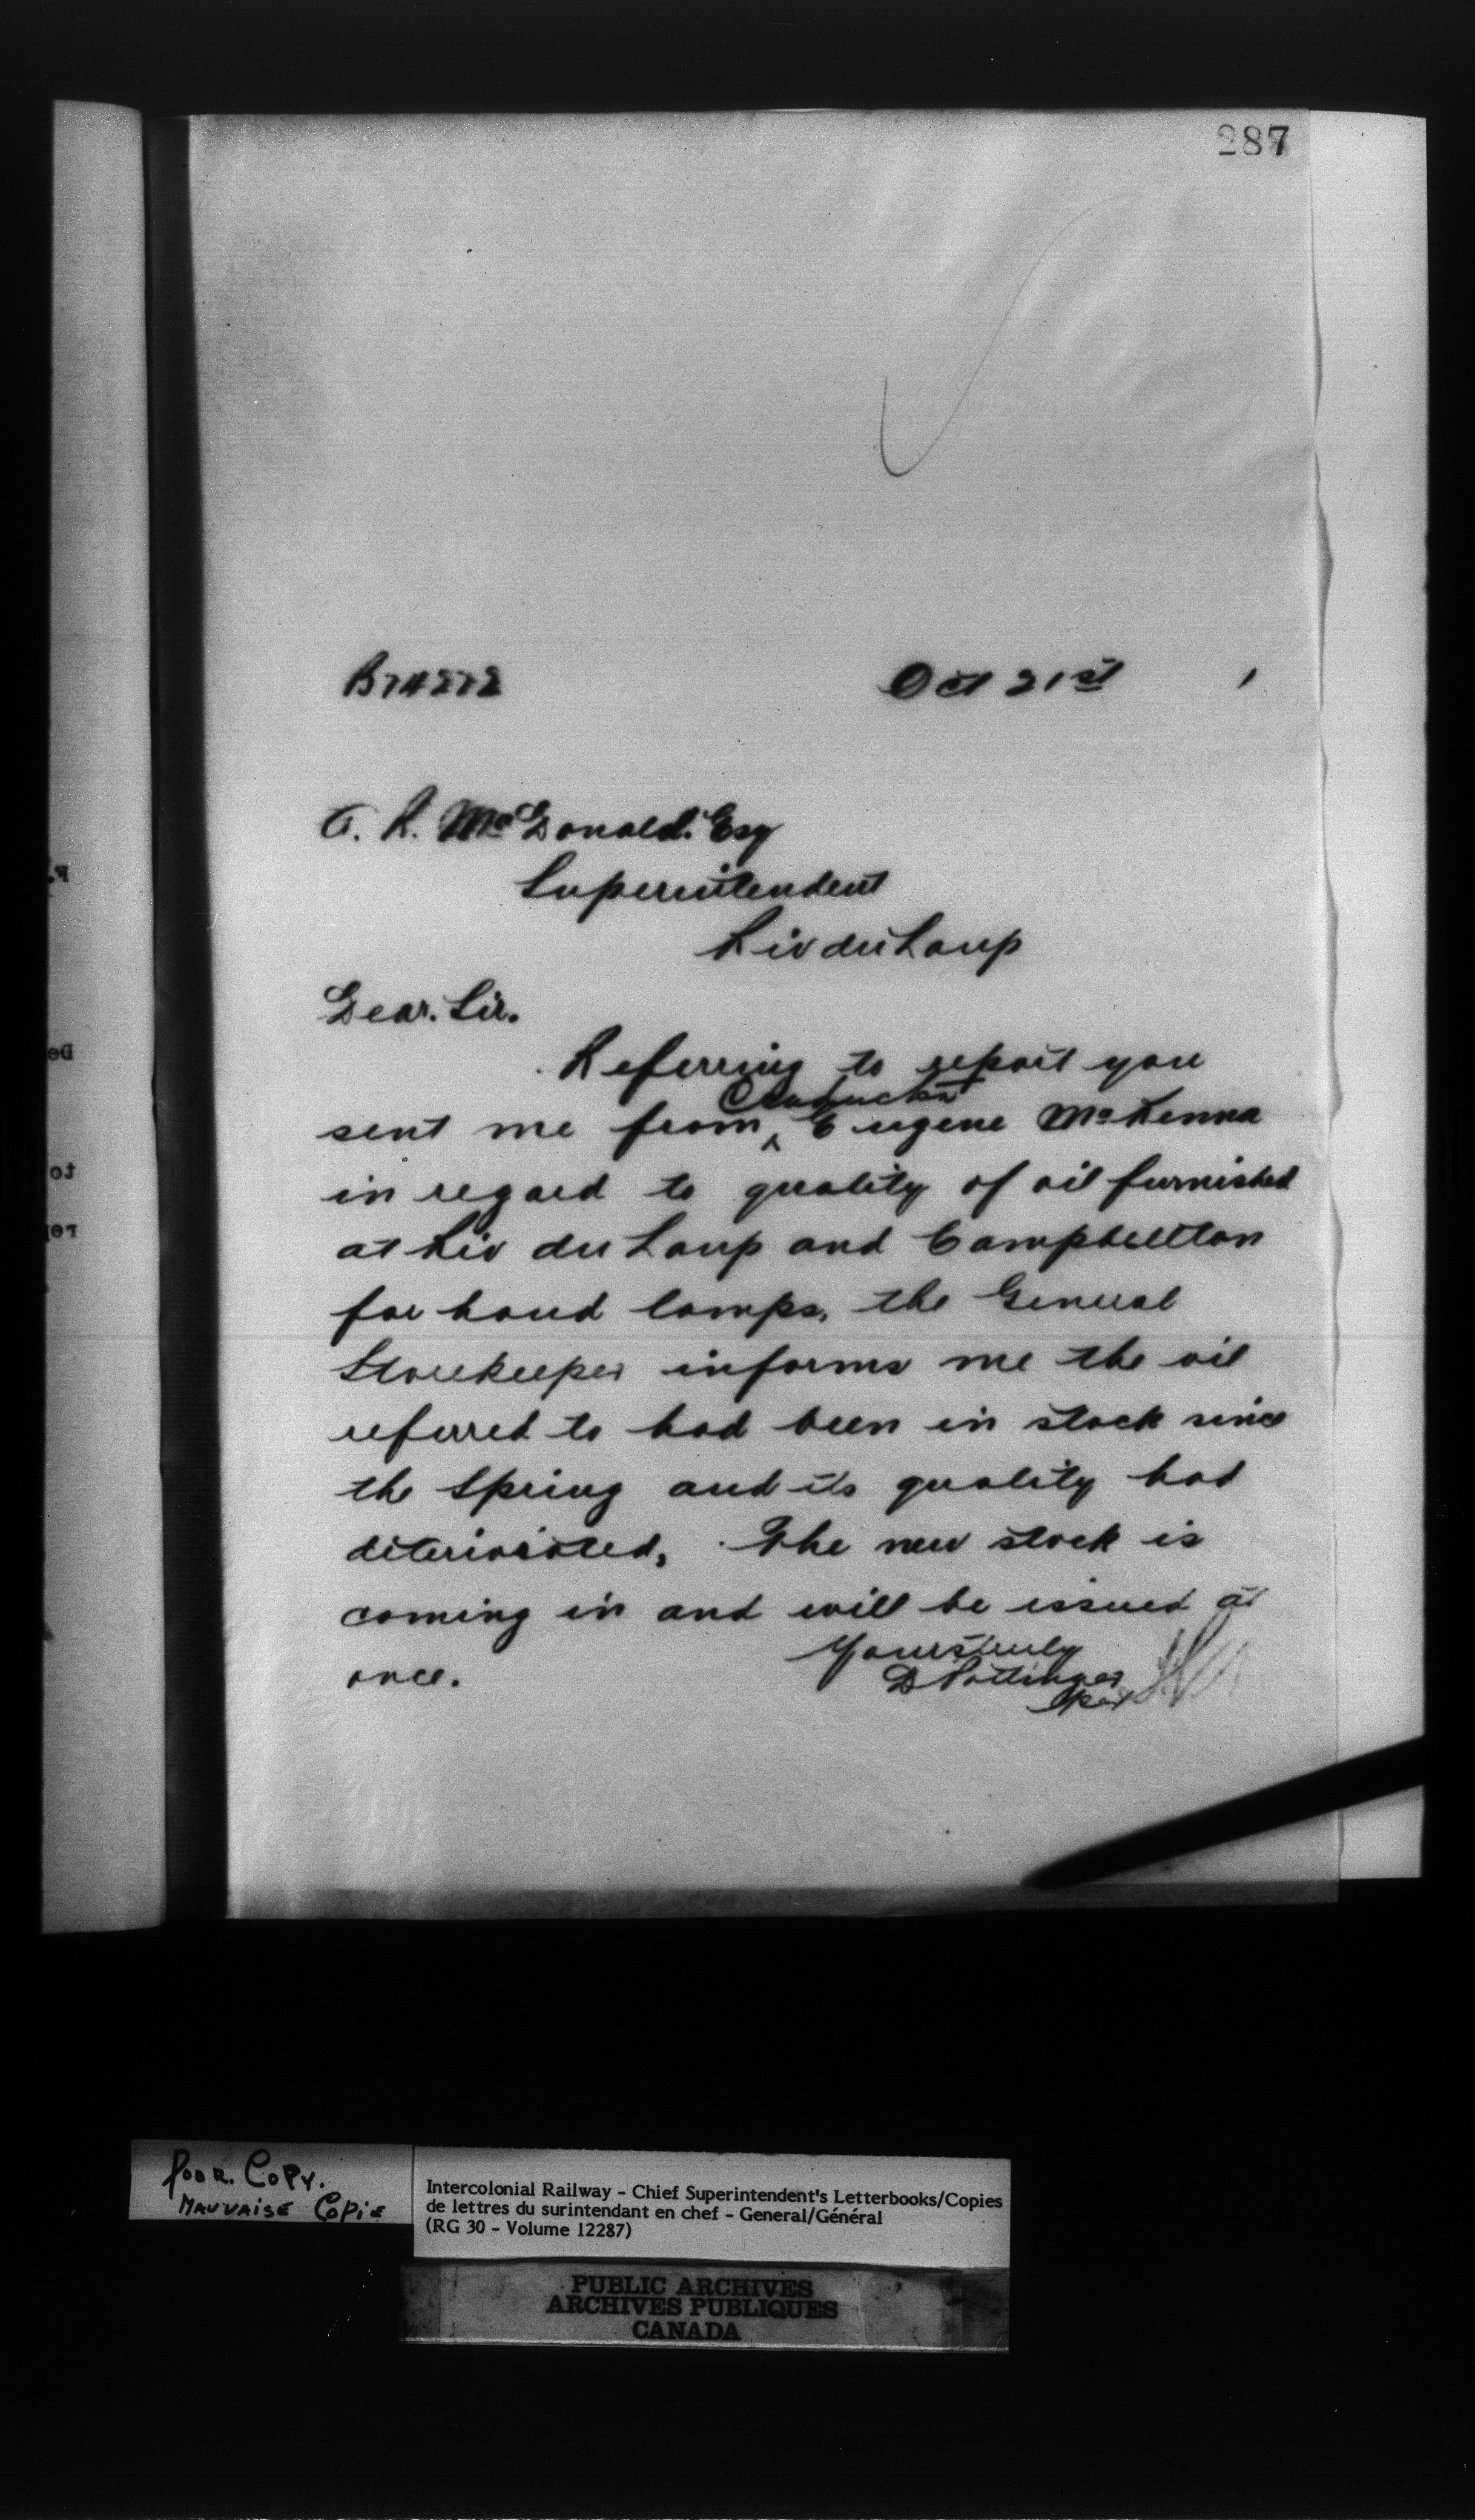 287
B74272 Oct 21st 1
A. R. McDonald. Esq
Superintendent
Riv du Loup
Dear. Sir.
Referring to report you
Conductor
sent me from ^ Eugene McKenna
in regard to quality of oil furnished
at Riv du Loup and Campbellton
for hand lamps, the General
Storekeeper informs me the oil
referred to had been in stock since
the Spring and its quality had
deteriorated, The new stock is
coming in and will be issued at
once.
Yours truly
D Pottinger
Poor. Copy.
Mauvaise Copie
Intercolonial Railway - Chief Superintendent's Letterbooks/Copies
de lettres du surintendant en chef - General/Général
(RG 30 - Volume 12287)
PUBLIC ARCHIVES
ARCHIVES PUBLIQUES
CANADA